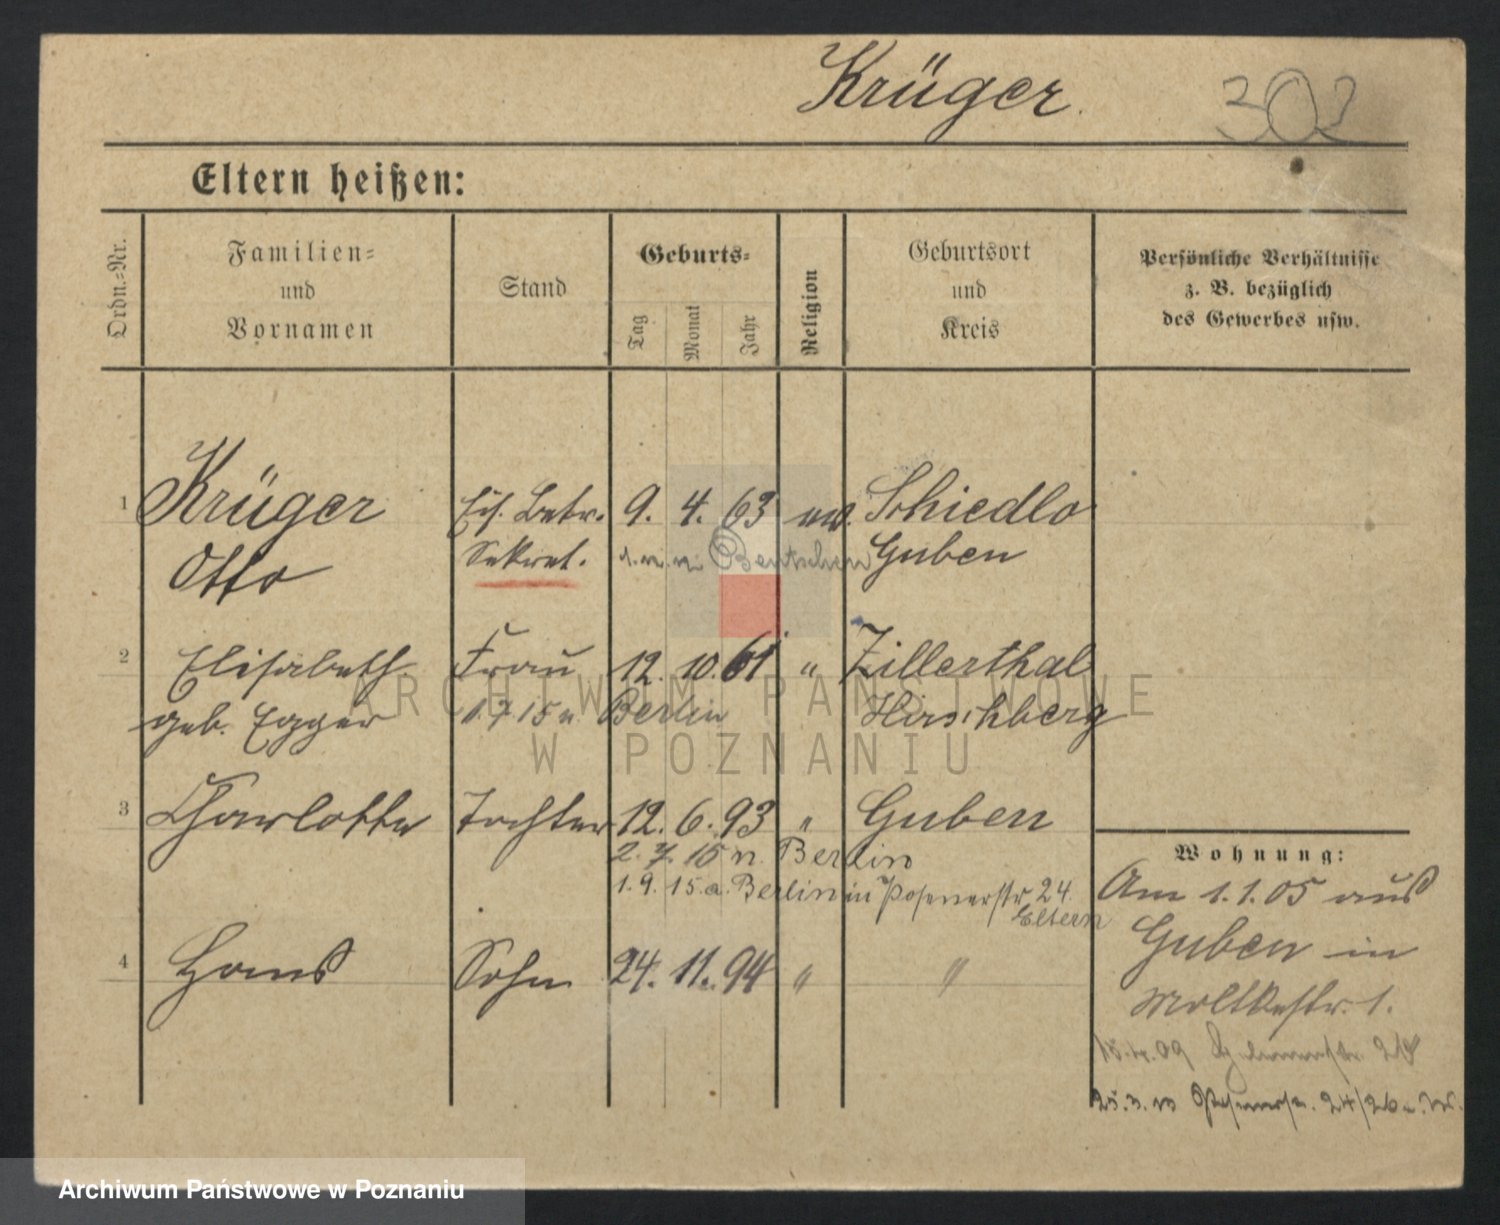 Krüger.
303
Eltern heißen:
Ordn.=Nr.
Familien=
und
Vornamen
Stand
Geburts=
Tag
Monat
Jahr
Religion
Geburtsort
und
Kreis
Persönliche Verhältnisse
z. B. bezüglich
des Gewerbes usw.
1 Krüger Eis. Betr. 9. 4. 63 ev. Schiedlo
Otto Sekret. Bentschen Guben
2 Elisabeth Frau 12. 10. 61 " Zillerthal
geb. Egger 1.7.15 n. Berlin Hirschberg
3 Charlotte Tochter 12. 6. 93 " Guben
2. 7. 15 n. Berlin
1. 9. 15 a. Berlin in Posenerstr 24
Eltern
4 Hans Sohn 24. 11. 94 " "
Wohnung:
Am 1.1.05 aus
Guben in
Moltkestr. 1.
15.4.09
25.3. Posenerstr. 24/26
ARCHIWUM PAŃSTWOWE
W POZNANIU
Archiwum Państwowe w Poznaniu